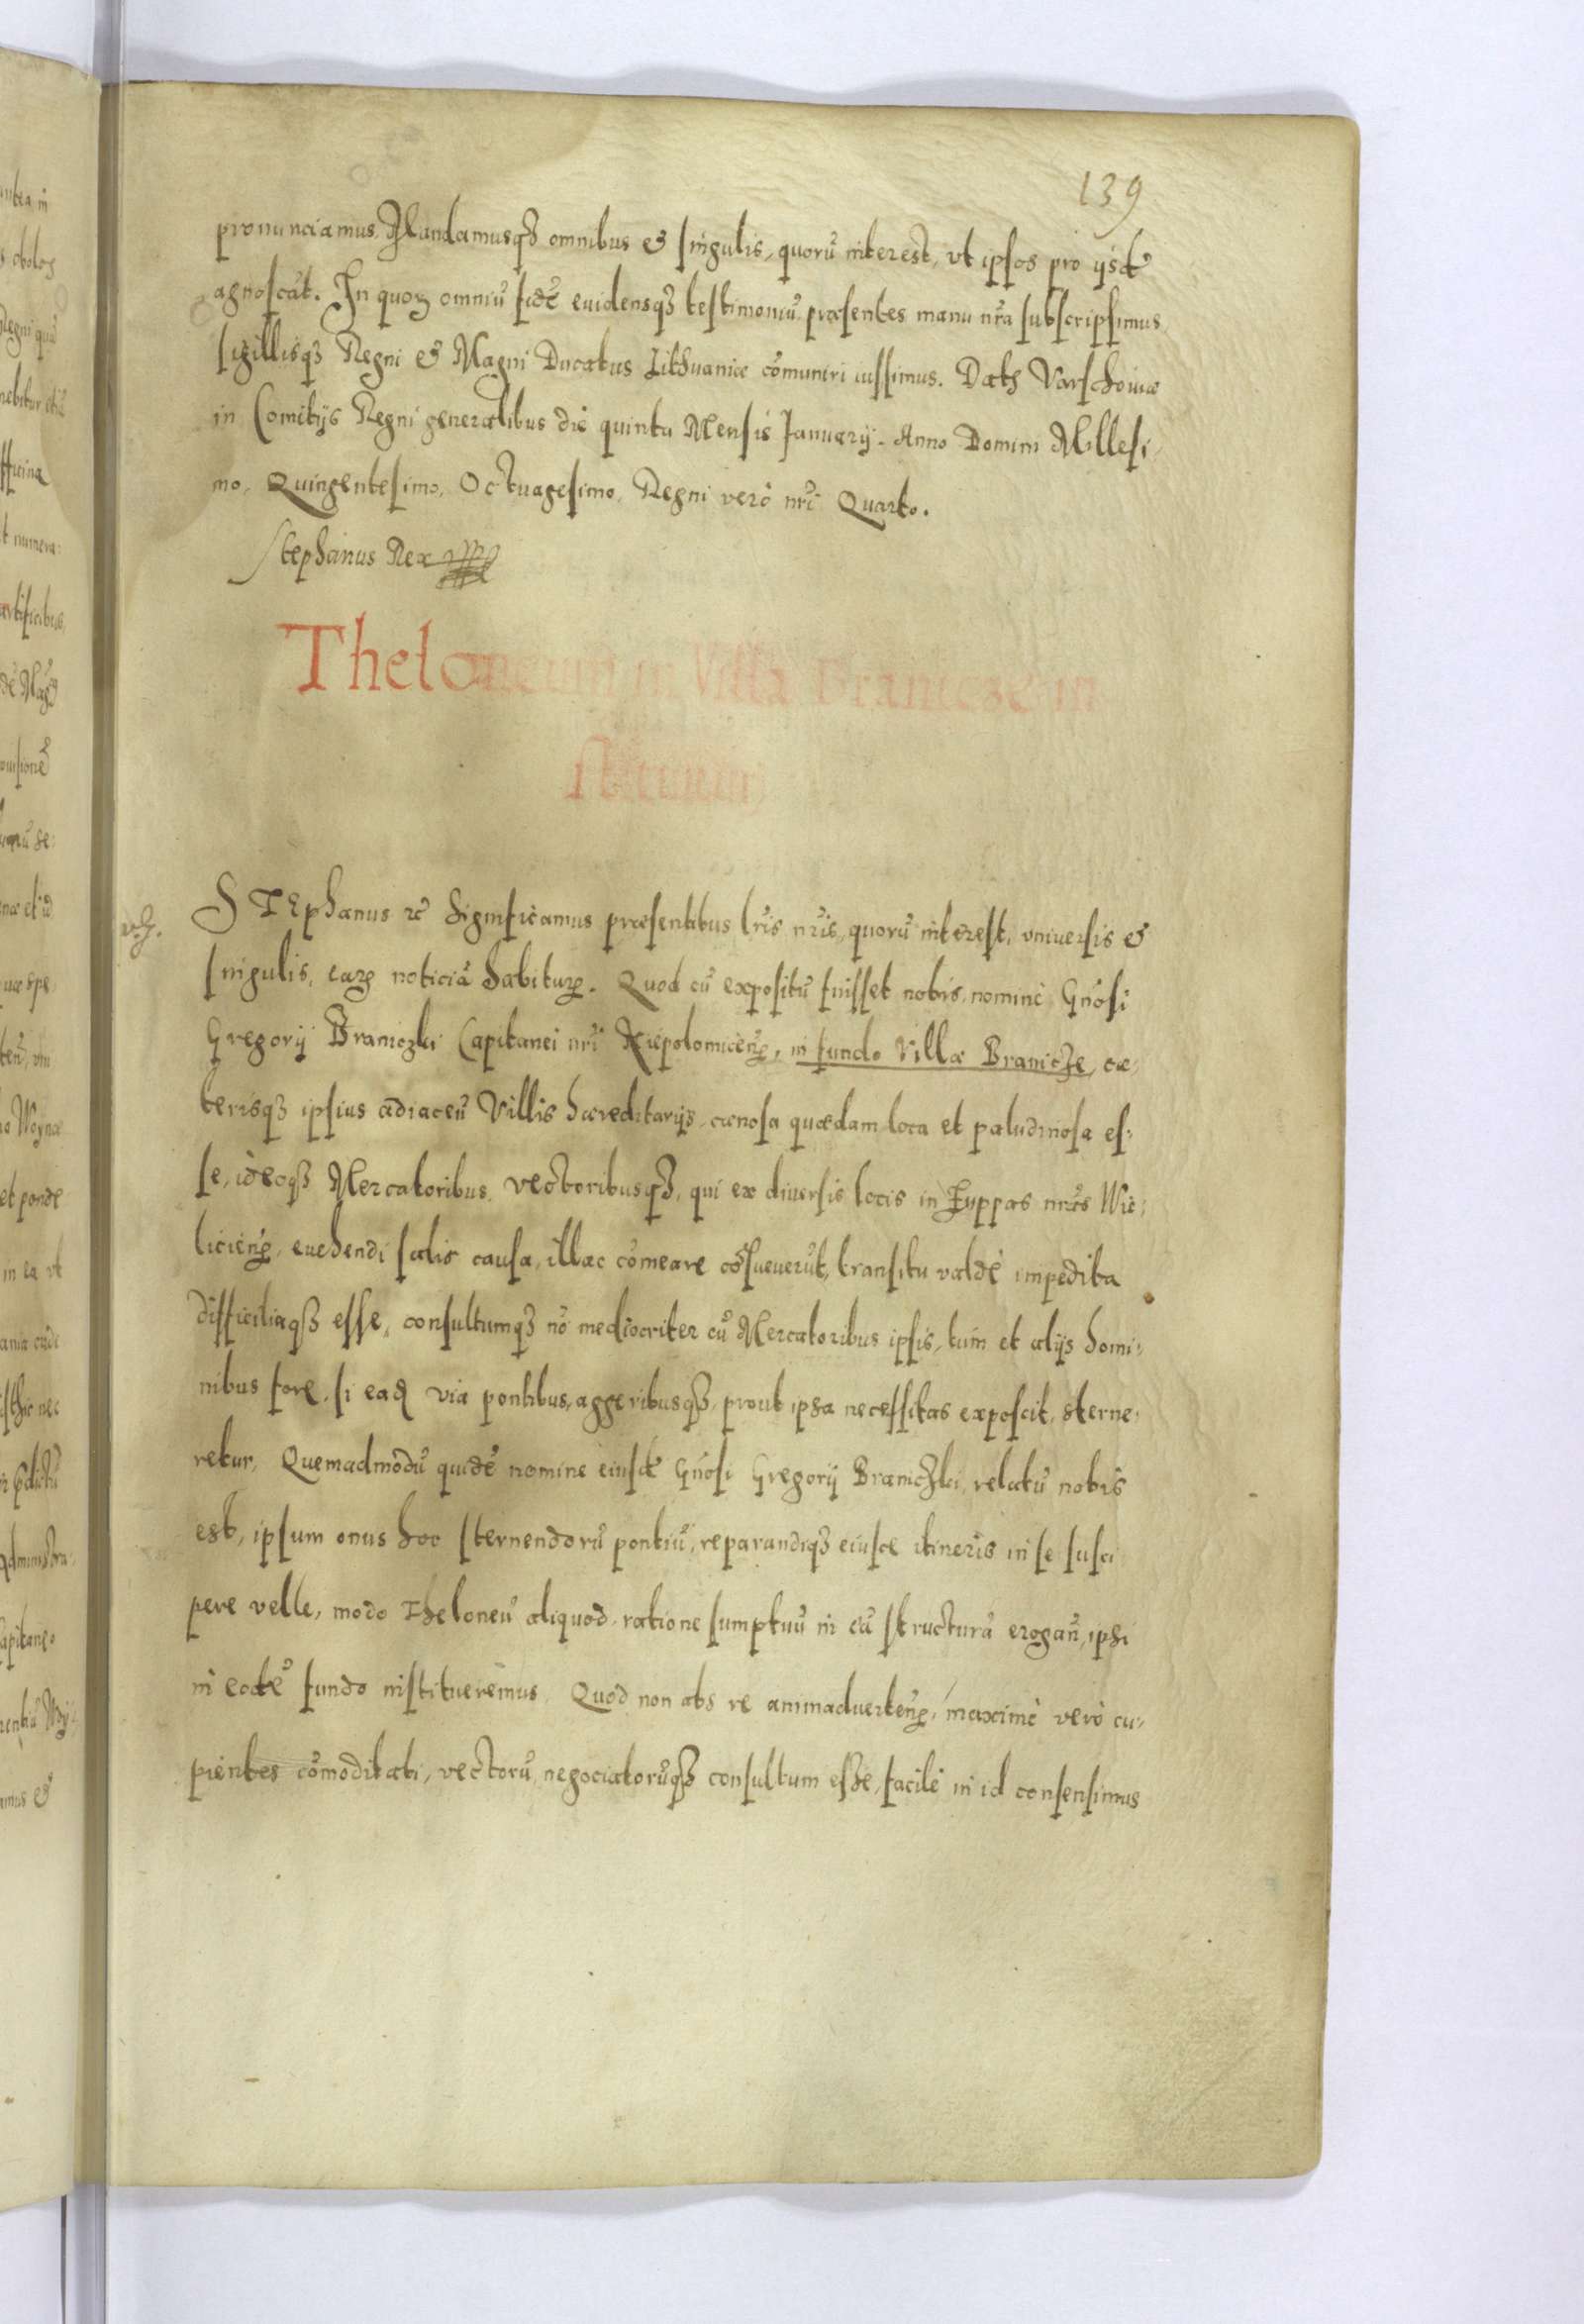 139
pronunciamus, Mandamusqȝ omnibus et singulis, quorū interest, vt ipsos pro ijsdē
agnoscāt. In quorȝ omniū fidē euidensqȝ testimoniū præsentes manu nr̃a subscripsimus
sigillisqȝ Regni et Magni Ducatus Lithuaniæ cōmuniri iussimus. Datȝ Varschouiæ
in Comitijs Regni generalibus die quinta Mensis Januarij. Anno Domini Millesi,
mo, Quingentesimo, Octuagesimo, Regni verò nr̃i Quarto.
Stephanus Rex
Theloneum in Villa Branicze in
stituitur
STEphanus etc̃ Significamus præsentibus lr̃is nr̃is, quorū interest, vniuersis et
singulis, earȝ noticiā habiturȝ. Quod cū expositū fuisset nobis, nomine Gñosi
Gregorij Braniczki Capitanei nr̃i Niepolomiceñ, in fundo Villæ Branicze, cæ,
terisqȝ ipsius adiaceñ Villis hæreditarijs, cænosa quædam loca et paludinosa es,
se, ideoqȝ Mercatoribus, vectoribusqȝ, qui ex diuersis locis in Zuppas nr̃as Wie,
licieñ, euehendi salis causa, illac cōmeare cōsueuerūt, transitu valdè impedita
difficiliaqȝ esse, consultumqȝ nō mediocriter cū Mercatoribus ipsis, tùm et alijs homi,
nibus fore, si eadē via pontibus, aggeribusqȝ, prout ipsa necessitas exposcit, sterne,
retur, Quemadmodū quidē nomine eiusdē Gñosi Gregorij Braniczki, relatū nobis
est, ipsum onus hoc sternendorū pontiū, reparandiqȝ eiusce itineris in se susci
pere velle, modo Theloneū aliquod, ratione sumptuū in eā structurā erogañ, ipsi
in eodē fundo institueremus. Quod non abs re animaduerteñ, maximè verò cu,
pientes cōmoditati, vectorū, negociatorūqȝ consultum esse, facilè in id consensimus